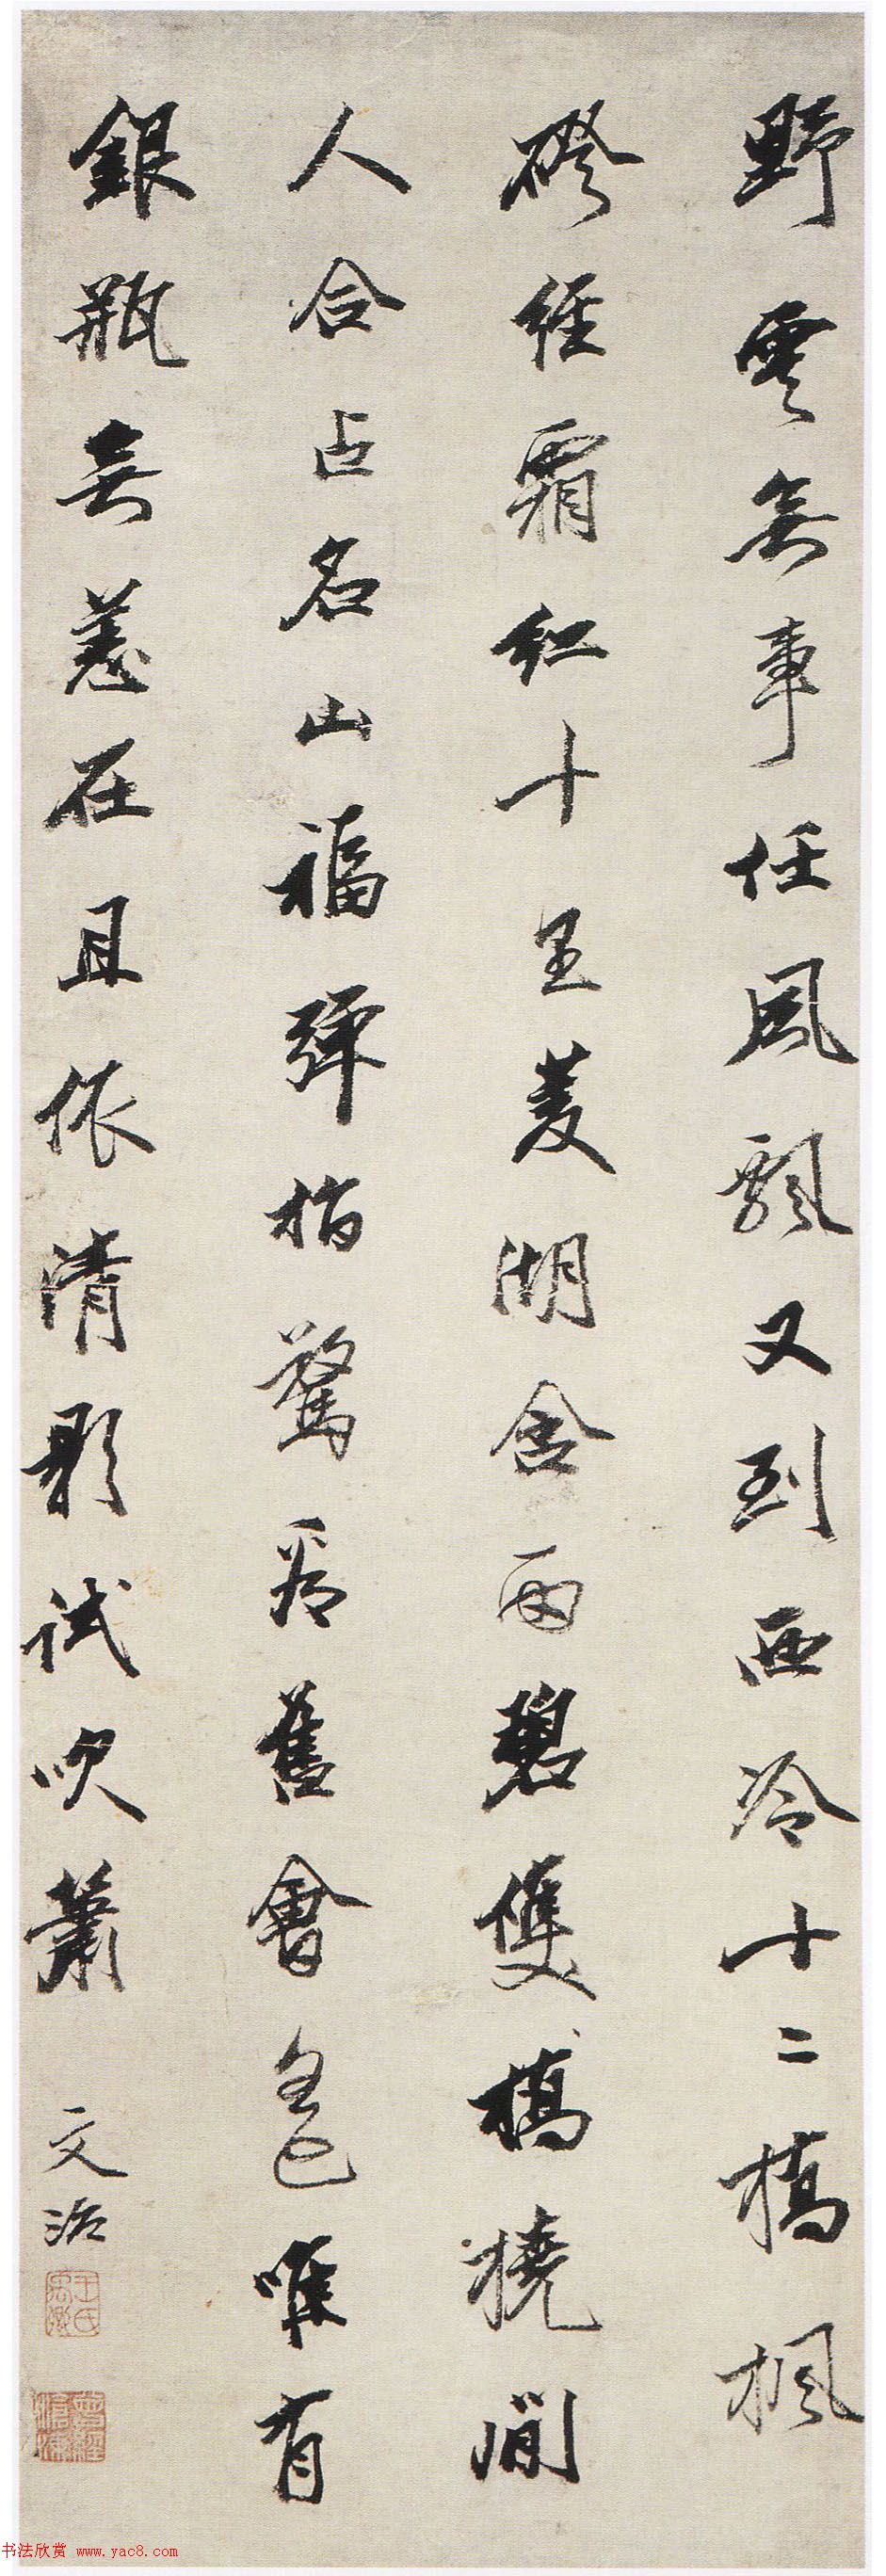 野雲無事任風飄又到西泠十二橋楓
磴經霜紅十里菱湖含雨碧雙橋橈閒
人合占名山福彈指驚看舊會遙唯有
銀瓶無恙在且依清影試吹簫
文治
王氏禹卿
曾經滄海
书法欣赏 www.yac8.com